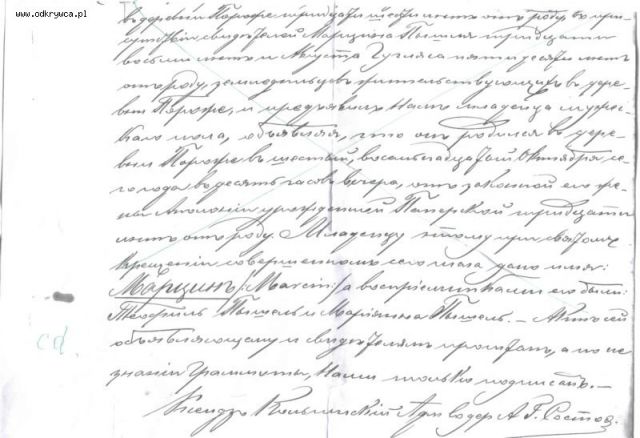 www.odkrywca.pl
въ деревни Пороже тридцати шести лѣтъ отъ роду, въ при-
сутствіи свидѣтелей Марцина Пышля тридцати
восьми лѣтъ и Августа пятидесяти лѣтъ
отъ роду, земледѣльцевъ жительствующихъ въ дере-
вни Пороже, и предъявилъ Намъ младенца муже-
скаго пола, объявляя, что онъ родился въ дере-
вни Пороже въ шестый, восемнадцатый Октября се-
го года въ десять часовъ вечера, отъ законной его же-
ны Аполоніи урожденной тридцати
лѣтъ отъ роду. Младенцу этому при святомъ
крещеніи совершенномъ сего числа дано имя:
Марцинъ /:Marcin:/ а воспріемниками его были:
Теофиль Пышель и Маріянна Пышель. — Актъ сей
объявляющему и свидѣтелямъ прочитанъ, а по не
знанію грамоты, Нами только подписанъ. —
Ксендзъ А. Г.